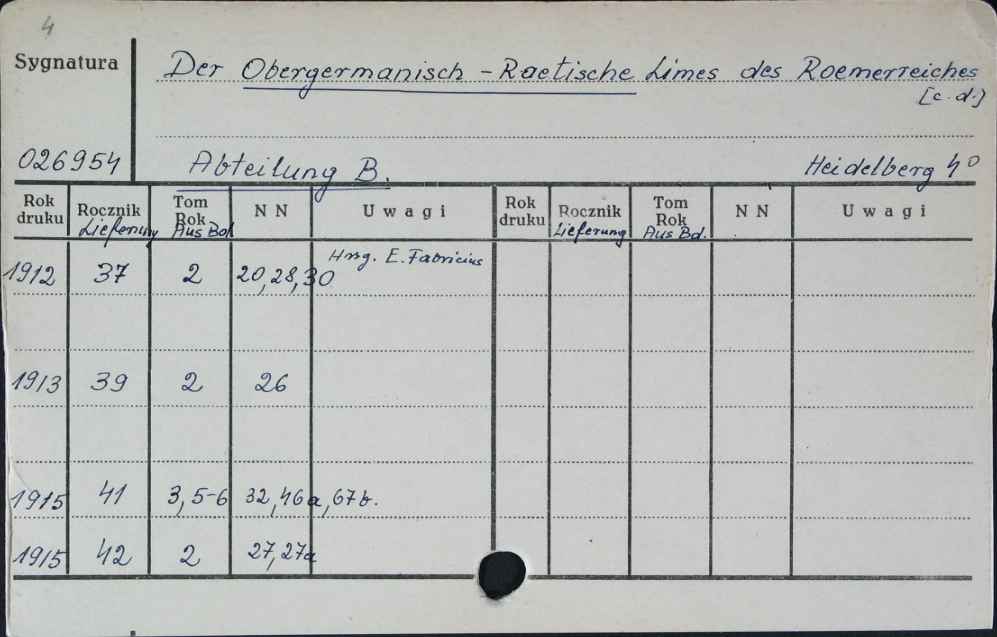 4
Sygnatura
Der Obergermanisch - Raetische Limes des Roemerreiches
[c.d.]
026954
Abteilung B.
Heidelberg 4°
Rok druku Rocznik Tom Rok N N Uwagi Rok druku Rocznik Tom Rok N N Uwagi
Lieferung Aus Bd. Lieferung Aus Bd.
Hrsg. E. Fabricius
1912 37 2 20, 28, 30
1913 39 2 26
1915 41 3, 5-6 32, 46a, 67b.
1915 42 2 27, 27a